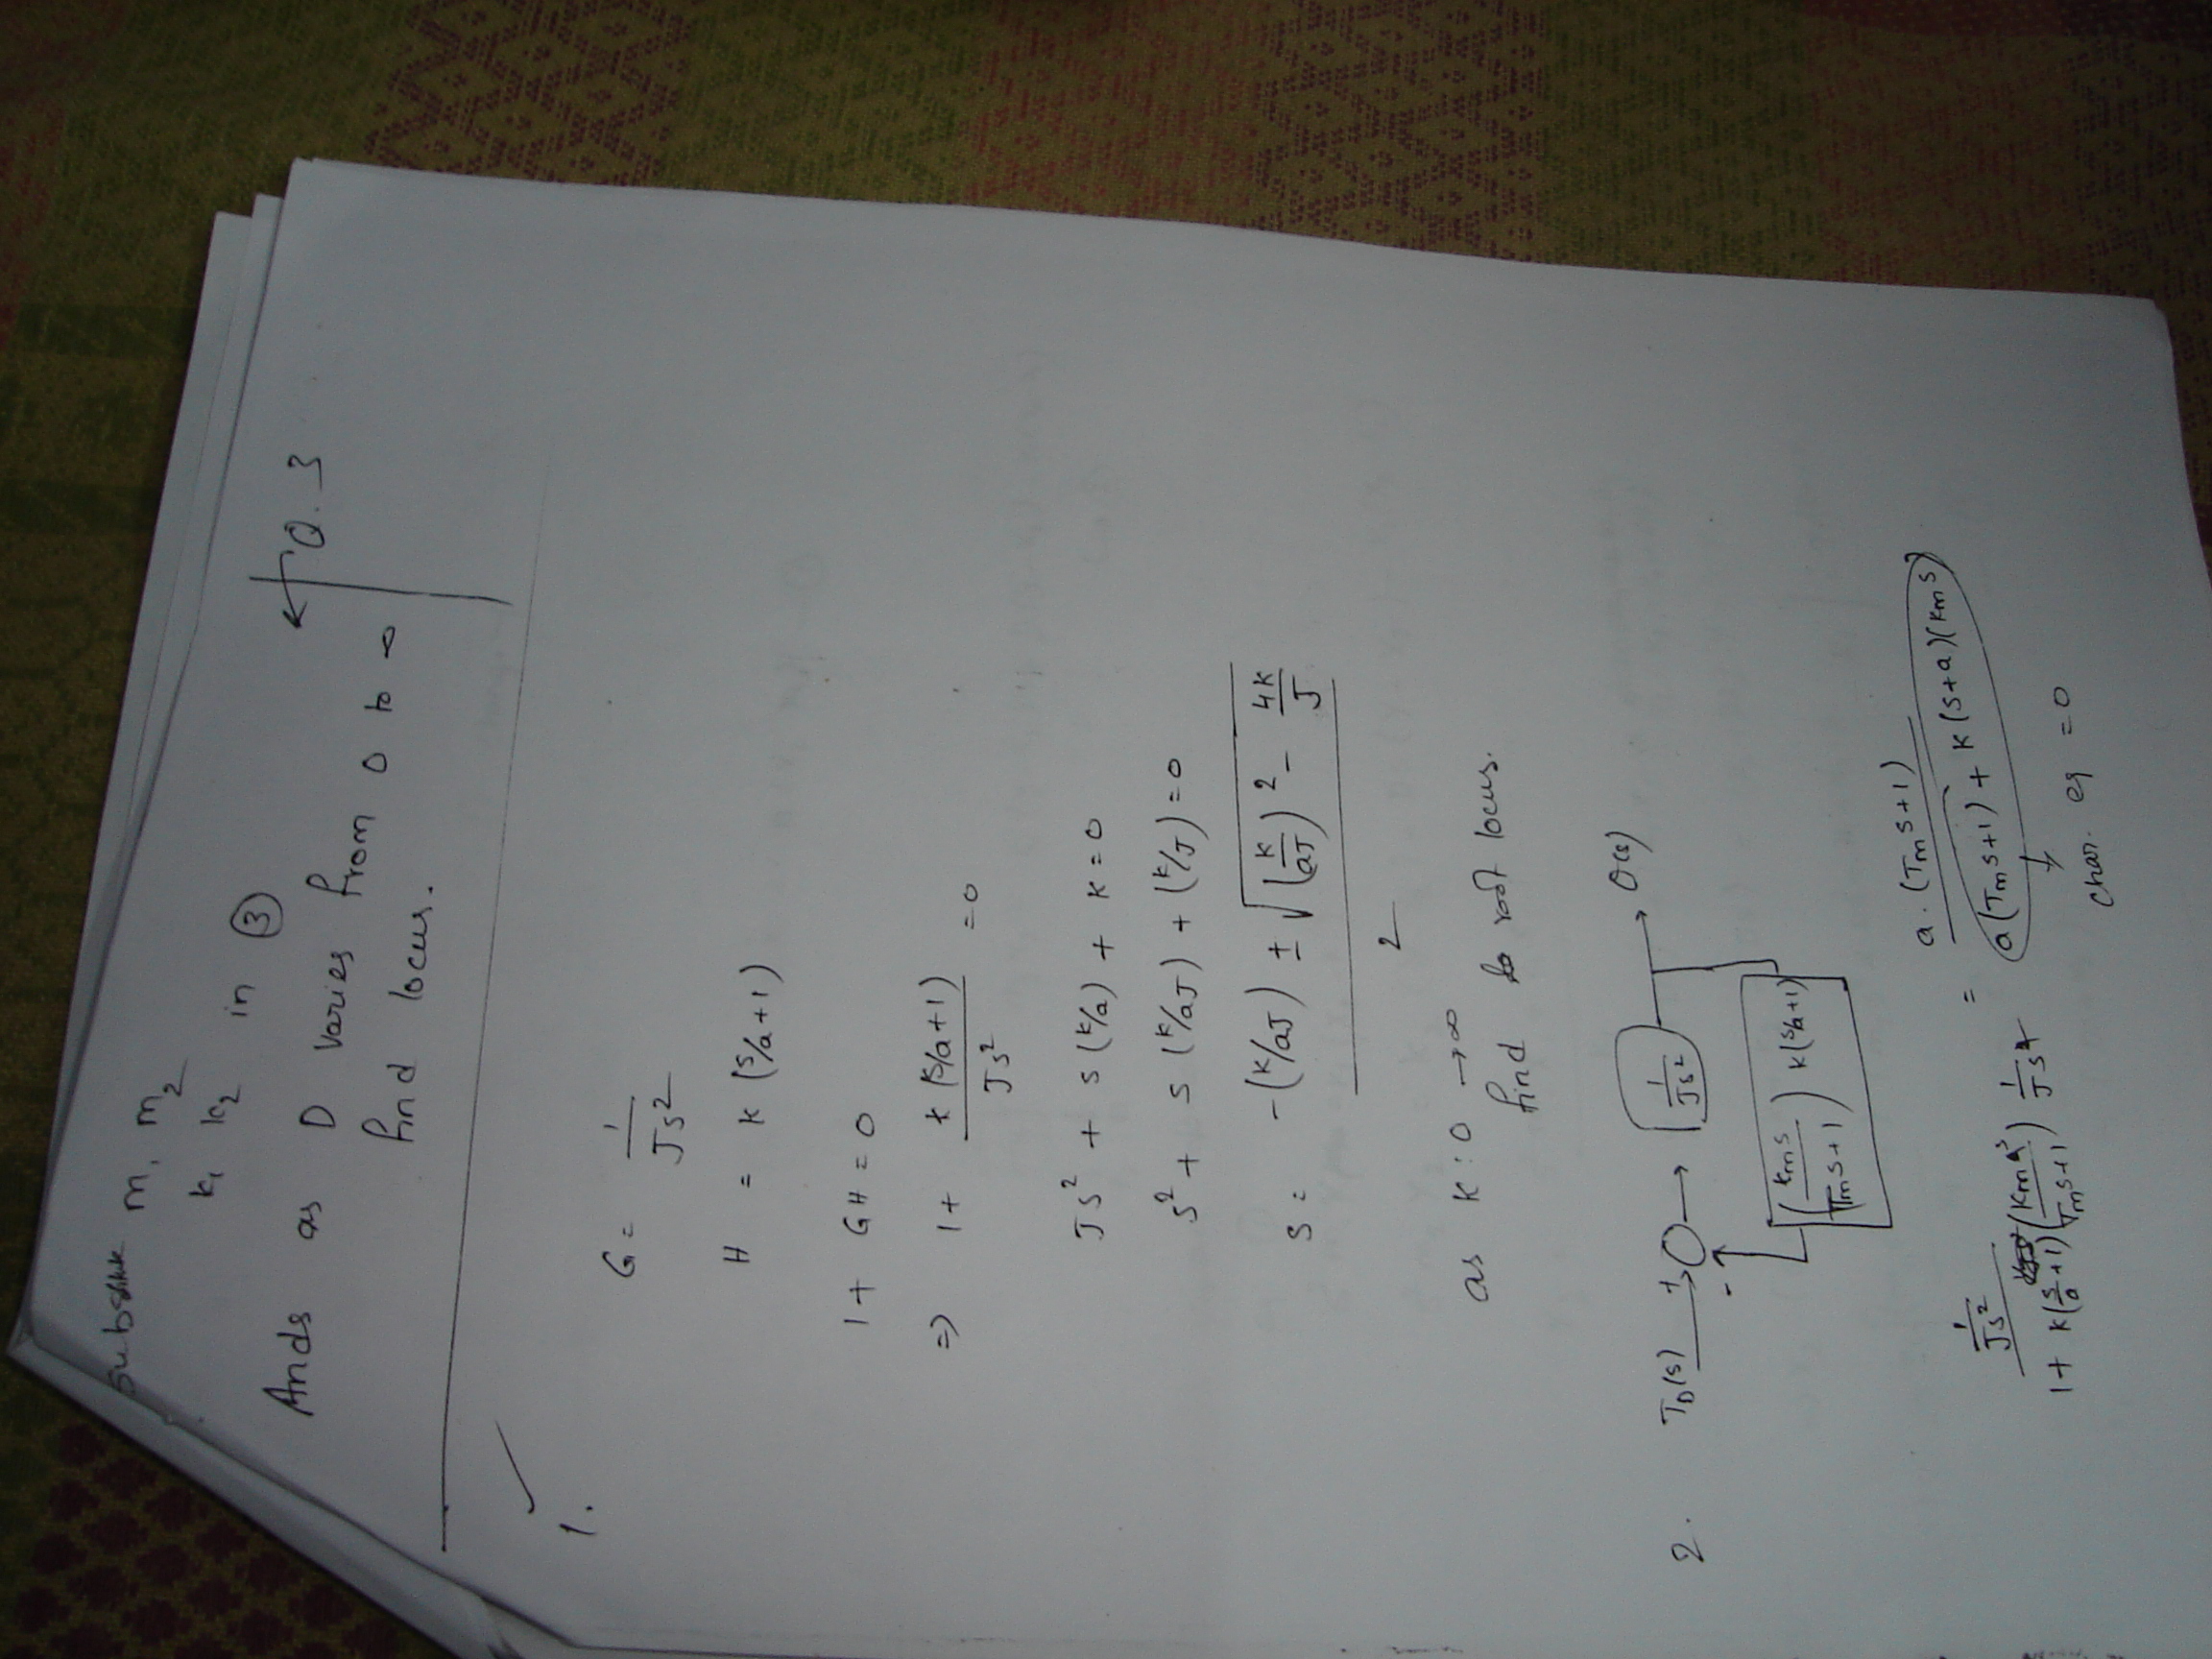 Substitute m1 m2
k1 k2 in ③
And as D varies from 0 to ∞
find locus.
← Q.3
1. ✓
G = 1/Js²
H = K (s/a+1)
1 + GH = 0
⇒ 1 + K(s/a+1)/Js² = 0
Js² + s(K/a) + K = 0
s² + s(K/aJ) + (K/J) = 0
s = -(K/aJ) ± √((K/aJ)² - 4K/J) / 2
as K : 0 → ∞
find root locus.
2. TD(s) + → ○ → 1/Js² → θ(s)
-
(Kms/(Tms+1)) K(s/a+1)
(1/Js²) / (1 + K(s/a+1)(Kms/(Tms+1)) 1/Js²) = a.(Tms+1) / (a(Tms+1) + K(s+a)(Kms))
↓
char. eq = 0